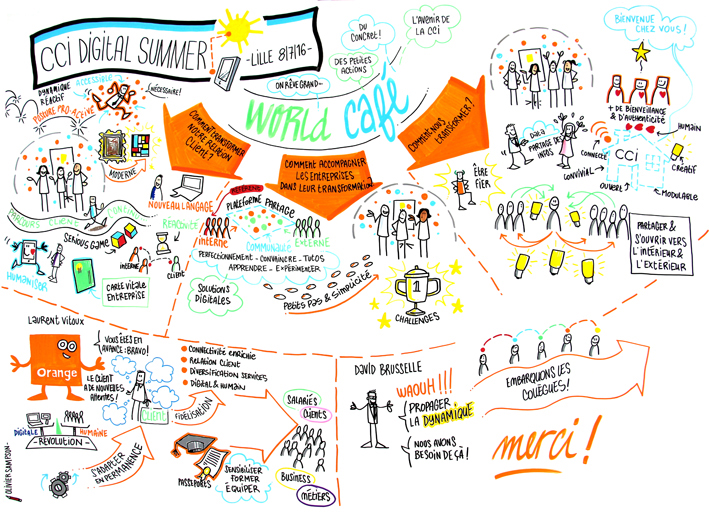 CCI DIGITAL SUMMER
- LILLE 8|7|16 -
DU
CONCRET!
L'AVENIR DE
LA CCI
ON RÊVE GRAND...
DES PETITES
ACTIONS
WORLD
Café
BIENVENUE
CHEZ VOUS!
DYNAMIQUE
RÉACTIF
ACCESSIBLE
NÉCESSAIRE!
POSTURE PRO-ACTIVE
MODERNE
PARCOURS CLIENT CONTINU
NOUVEAU LANGAGE
SERIOUS GAME
RÉACTIVITÉ
INTERNE
CLIENT
HUMANISER
CARTE VITALE
ENTREPRISE
COMMENT TRANSFORMER
NOTRE RELATION
CLIENT?
COMMENT ACCOMPAGNER
LES ENTREPRISES
DANS LEUR TRANSFORMATION?
COMMENT NOUS
TRANSFORMER?
RÉFÉRENT
PLATEFORME PARTAGE
INTERNE
COMMUNAUTÉ
EXTERNE
PERFECTIONNEMENT - CONVAINCRE - TUTOS
APPRENDRE - EXPÉRIMENTER
SOLUTIONS
DIGITALES
PETITS PAS & SIMPLICITÉ
1
CHALLENGES
ÊTRE
FIER
DATA
PARTAGE DES
INFOS
+ DE BIENVEILLANCE
& D'AUTHENTICITÉ
HUMAIN
CONNECTÉ
CCI
CRÉATIF
CONVIVIAL
OUVERT
MODULABLE
PARTAGER &
S'OUVRIR VERS
L'INTÉRIEUR &
L'EXTÉRIEUR
LAURENT VITOUX
orange
VOUS ÊTES EN
AVANCE: BRAVO!
LE CLIENT
A DE NOUVELLES
ATTENTES!
CLIENT
DIGITALE
HUMAINE
RÉVOLUTION
S'ADAPTER
EN PERMANENCE
FIDÉLISATION
CONNECTIVITÉ ENRICHIE
RELATION CLIENT
DIVERSIFICATION SERVICES
DIGITAL & HUMAIN
PASSEPORTS
SENSIBILISER
FORMER
ÉQUIPER
SALARIÉS
CLIENTS
BUSINESS
MÉTIERS
DAVID BRUSSELLE
WAOUH!!!
PROPAGER
LA DYNAMIQUE
NOUS AVONS
BESOIN DE ÇA!
EMBARQUONS LES
COLLÈGUES!
merci!
OLIVIER SAMPSON